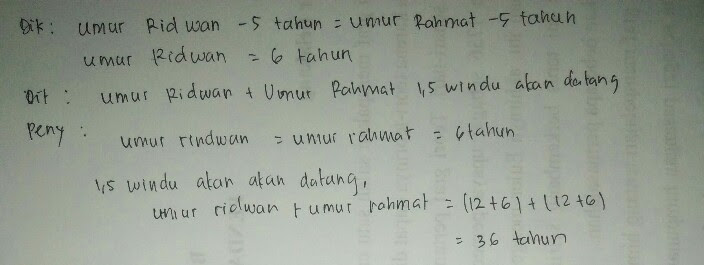 Dik : umur Ridwan -5 tahun = umur Rahmat -5 tahun
umur Ridwan = 6 tahun
Dit : umur Ridwan + Umur Rahmat 1,5 windu akan datang
Peny : umur rindwan = umur rahmat = 6 tahun
1,5 windu akan akan datang,
umur ridwan + umur rahmat = (12+6) + (12+6)
= 36 tahun